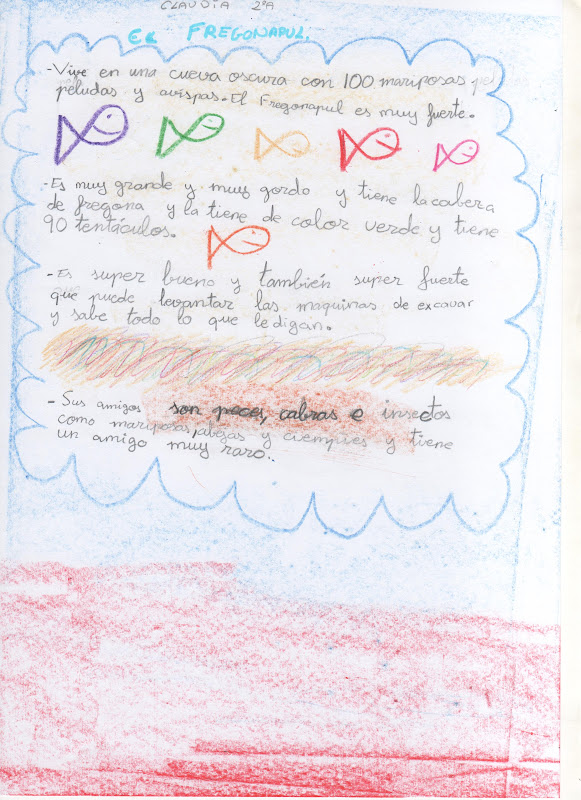 CLAUDIA 2ºA
EL FREGONAPUL.
-Vive en una cueva oscura con 100 mariposas
peludas y avispas. El Fregonapul es muy fuerte.
-Es muy grande y muy gordo y tiene la cabeza
de fregona y la tiene de color verde y tiene
90 tentáculos.
-Es super bueno y también super fuerte
que puede levantar las maquinas de excavar
y sabe todo lo que le digan.
- Sus amigos son peces, cabras e insectos
como mariposas, abejas y ciempies y tiene
un amigo muy raro.